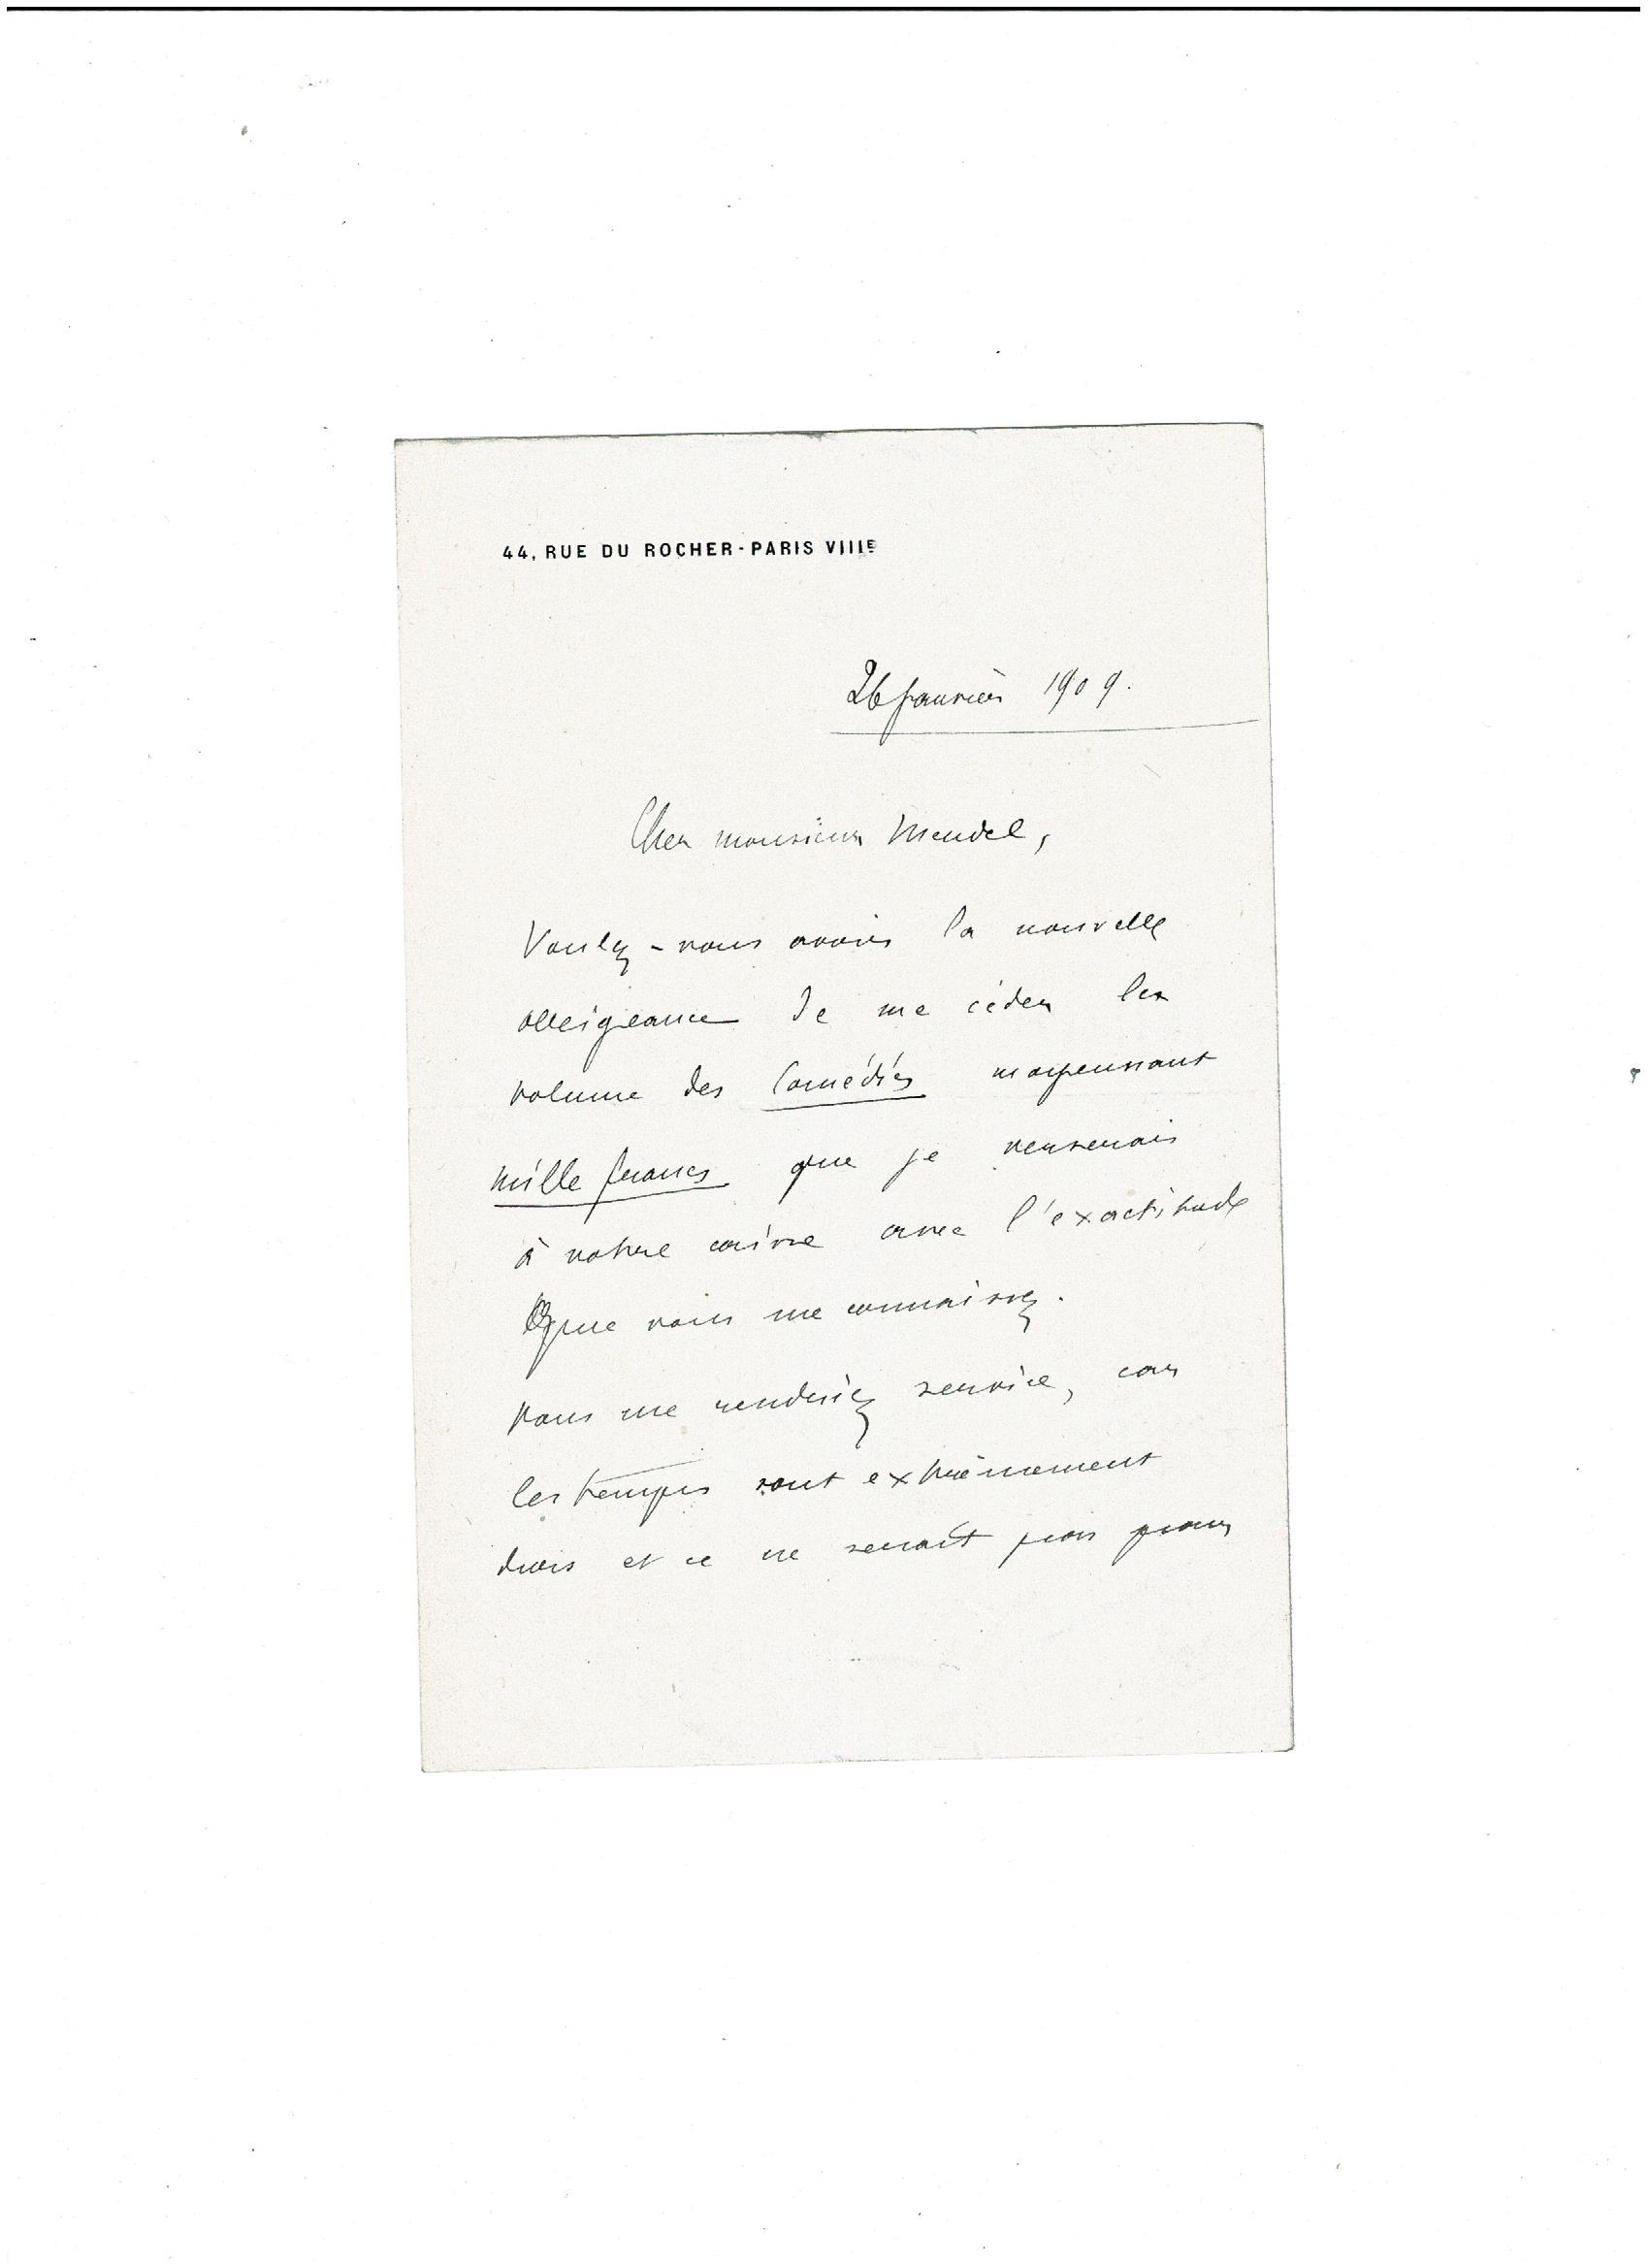 44, RUE DU ROCHER - PARIS VIIIE
26 janvier 1909.
Cher monsieur Mendel,
Voulez-vous avoir la nouvelle
obligeance de me céder les
volume des Comédies moyennant
mille francs que je verserais
à votre caisse avec l'exactitude
que vous me connaissez.
Vous me rendriez service, car
les temps sont extrêmement
durs et ce ne serait pas pour